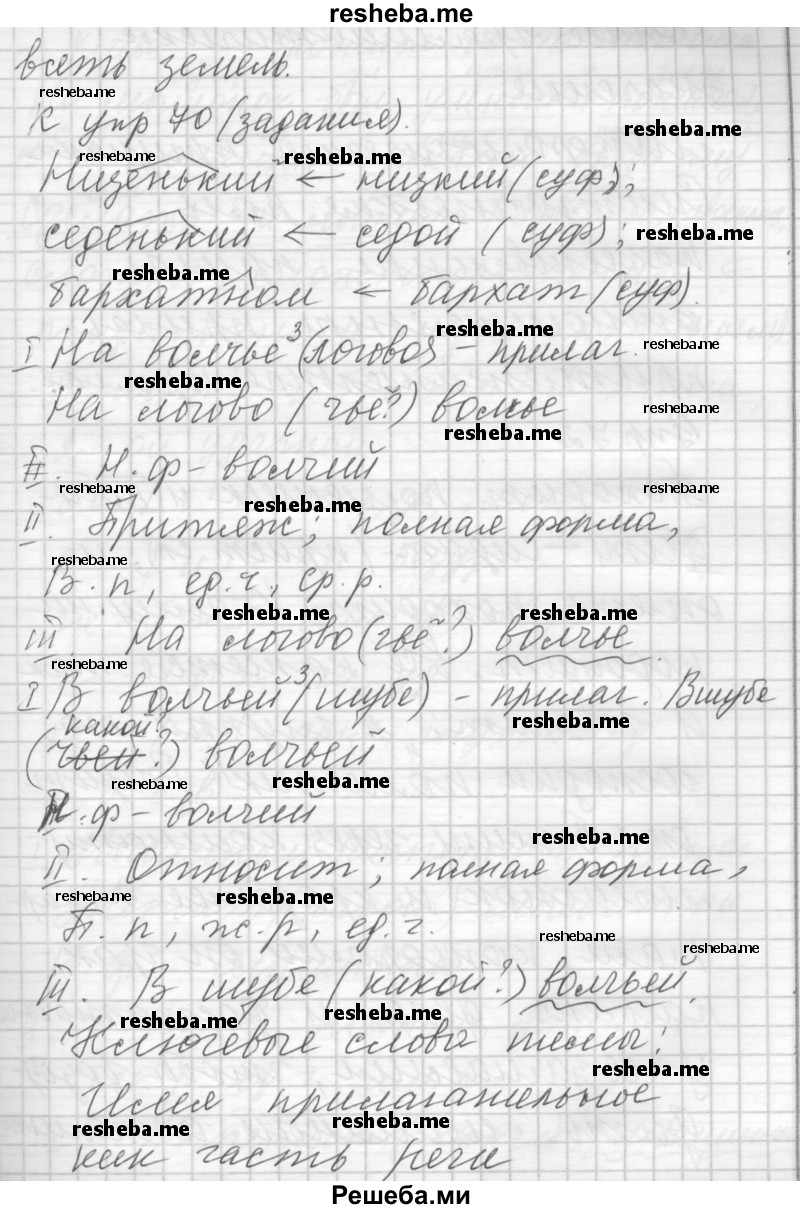 resheba.me
всеть земель.
resheba.me
К упр 70 (задания).
resheba.me
resheba.me resheba.me
Низенький ← низкий (суф);
седенький ← седой (суф);
resheba.me
resheba.me
бархатном ← бархат (суф).
resheba.me
I На волчье³ (логово) – прилаг.
resheba.me
resheba.me
На логово (чьё?) волчье
resheba.me
resheba.me
II. Н.ф – волчий
resheba.me resheba.me
resheba.me
II. Притяж; полная форма,
resheba.me
В.п, ед.ч., ср.р.
resheba.me resheba.me
III. На логово (чьё?) волчье.
resheba.me
I В волчьей³ (шубе) – прилаг. В шубе
resheba.me
какой
(чьей?) волчьей
resheba.me resheba.me
Н.ф – волчий
resheba.me
II. Относит; полная форма,
resheba.me resheba.me
П.п, ж.р, ед.ч.
resheba.me
resheba.me
III. В шубе (какой?) волчьей.
resheba.me resheba.me
Ключевые слова темы:
resheba.me
Имя прилагательное
resheba.me resheba.me
как часть речи
Решеба.ми